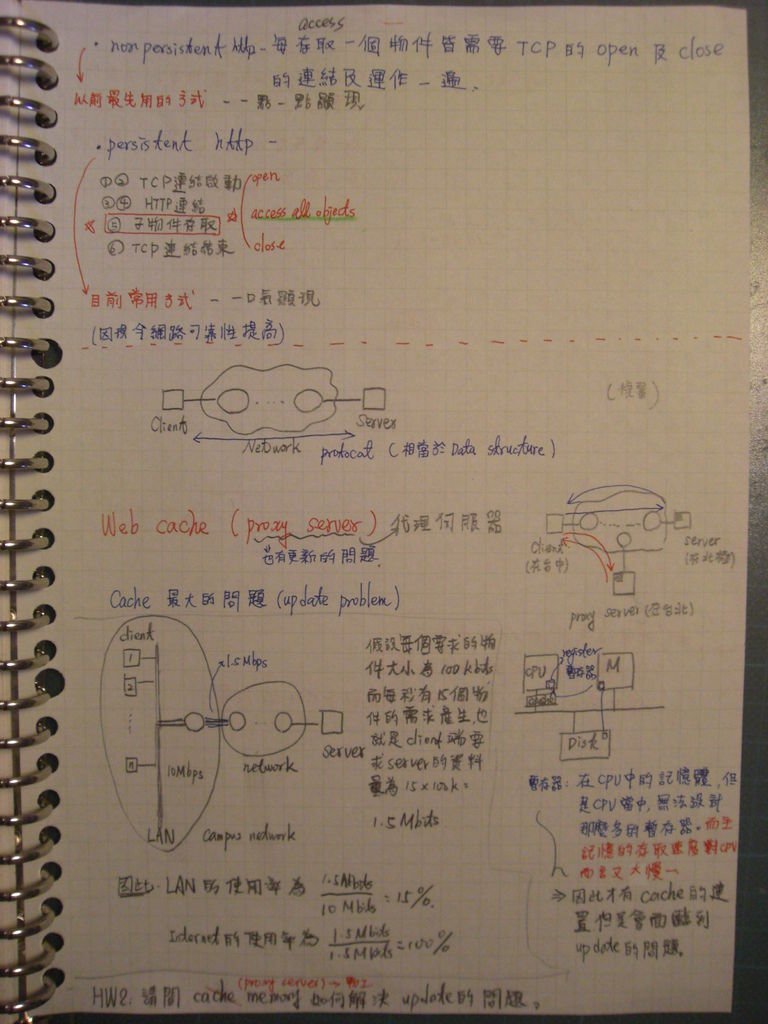 access
· nonpersistent http - 每存取一個物件皆需要 TCP 的 open 及 close
的連結及運作一遍.
以前最先用的方式 - - 一點一點顯現
· persistent http -
①② TCP 連結啟動 open
③④ HTTP 連結
⑤ 子物件存取 access all objects
⑥ TCP 連結結束 close
目前常用方式 - 一口氣顯現
(因現今網路可靠性提高)
Client
Server
Network
protocal (相當於 Data structure)
Web cache (proxy server) 代理伺服器
還有更新的問題.
client
(在台中)
server
proxy server (在台北)
Cache 最大的問題 (update problem)
client
1
2
n
1.5 Mbps
10Mbps
LAN
campus network
network
server
假設每個要求的物
件大小為 100 kbits
而每秒有 15 個物
件的需求產生, 也
就是 client 端要
求 server 的資料
量為 15 × 100k =
1.5 Mbits
CPU
register
暫存器
M
Disk
暫存器: 在 CPU 中的記憶體, 但
是 CPU 當中, 無法設計
那麼多的暫存器. 而主
記憶的存取速度對 CPU
而言又太慢
⇒ 因此才有 cache 的建
置但是會面臨到
update 的問題.
因此. LAN 的使用率為 1.5Mbits / 10 Mbits = 15%.
Internet 的使用率為 1.5 Mbits / 1.5 Mbits = 100%
(proxy server)
HW2: 請問 cache memory 如何解決 update 的問題.